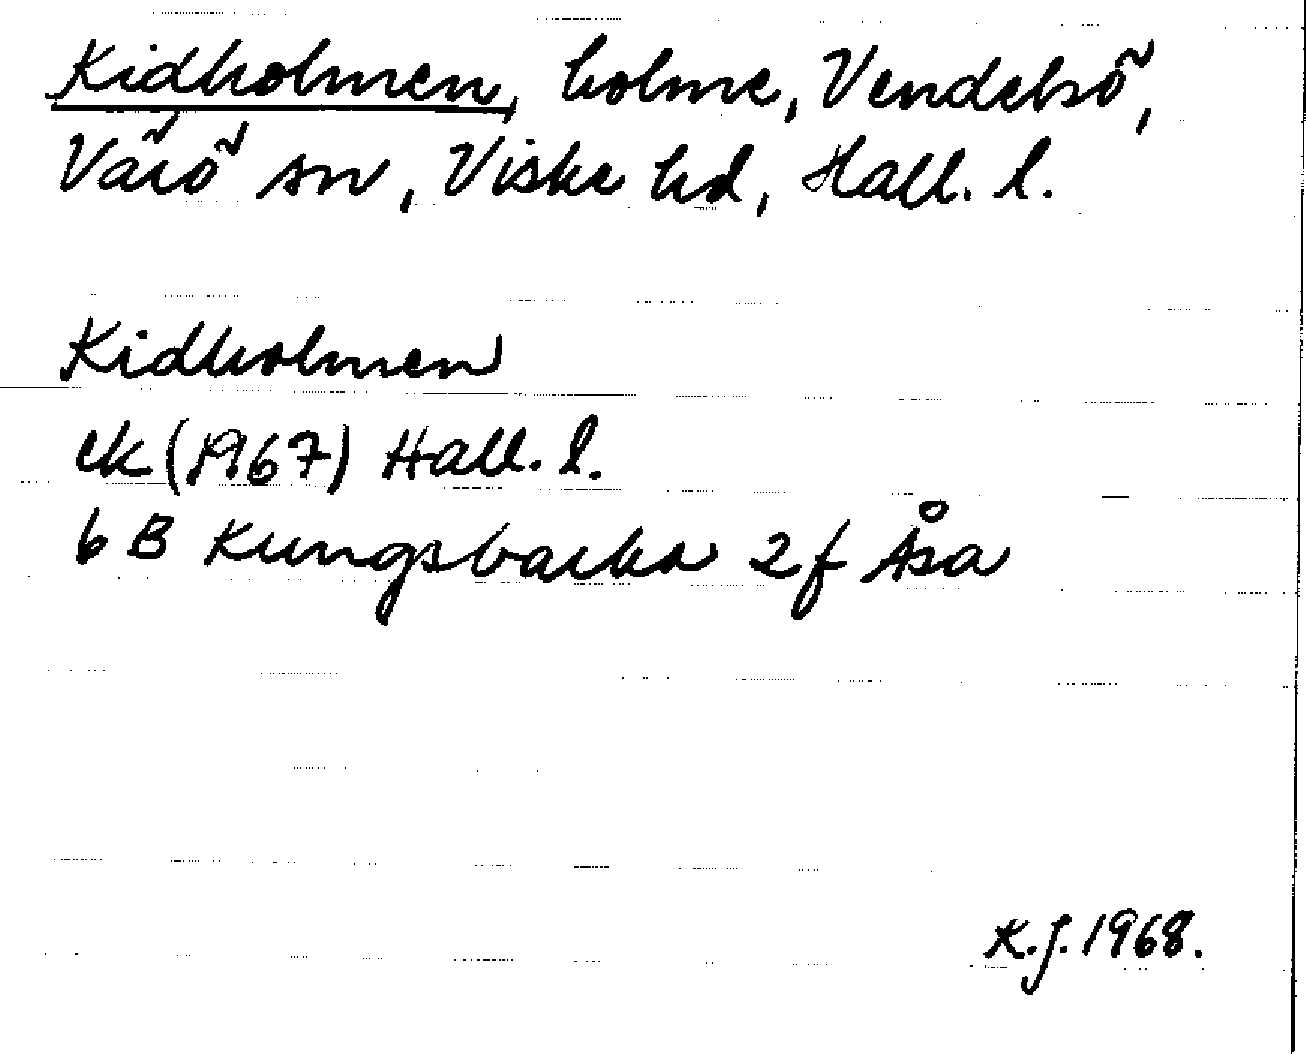 Kidholmen, holme, Vendelsö,
Värö sn, Viske hd, Hall. l.
Kidholmen
ek (1967) Hall. l.
6 B Kungsbacka 2f Åsa
K.J. 1968.